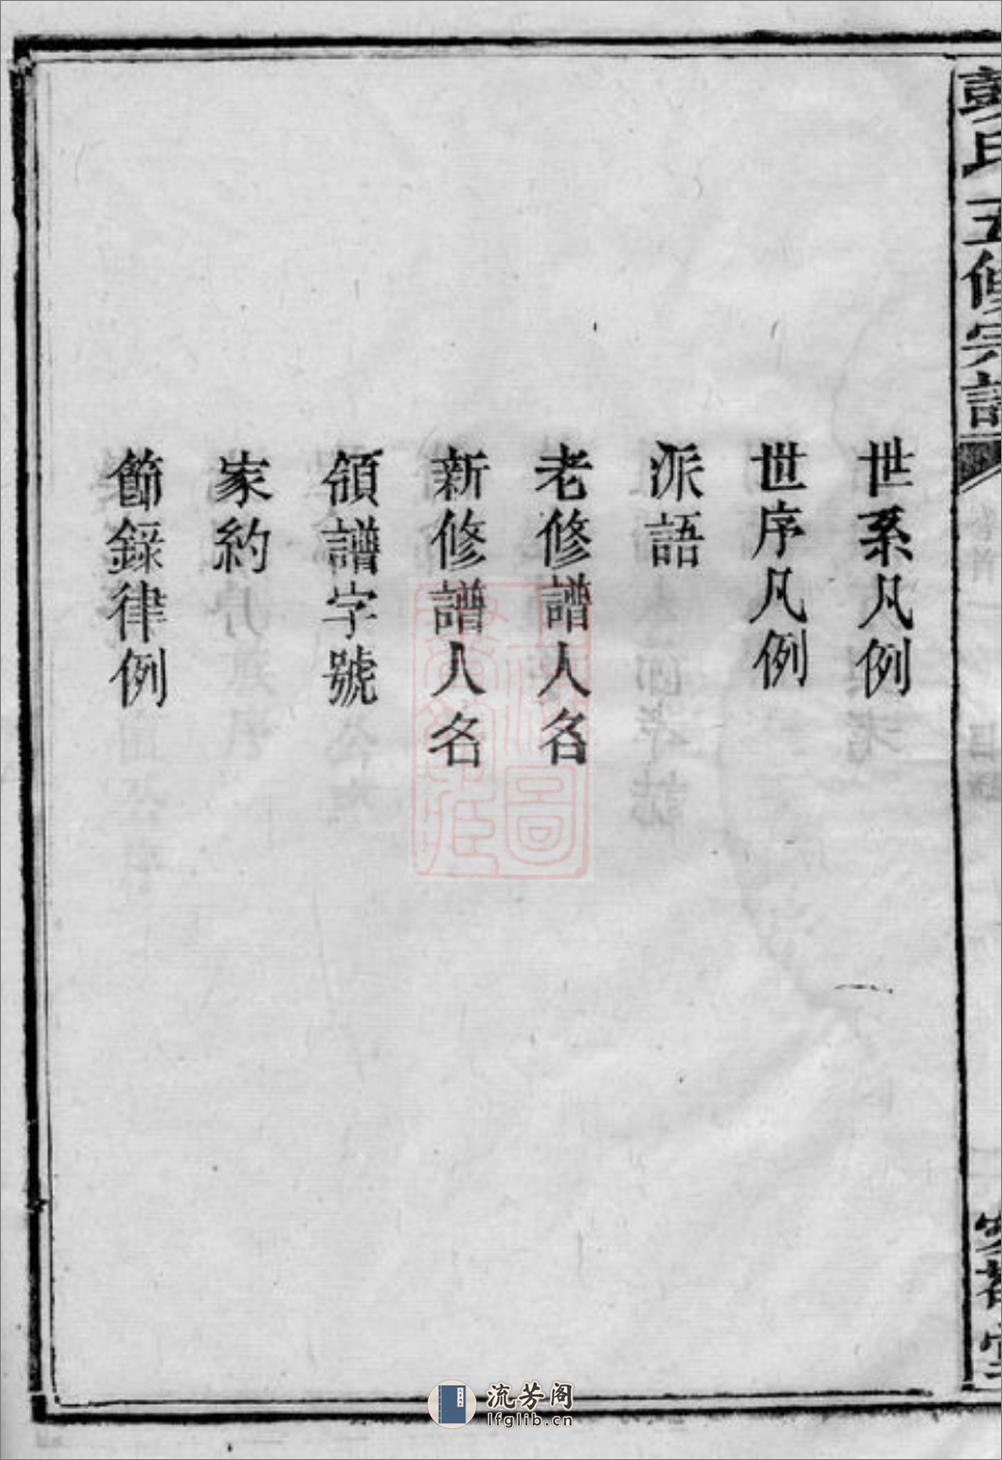 彭氏五修宗譜
世系凡例
世序凡例
派語
老修譜人名
新修譜人名
領譜字號
家約
節錄律例
流芳阁
lfglib.cn